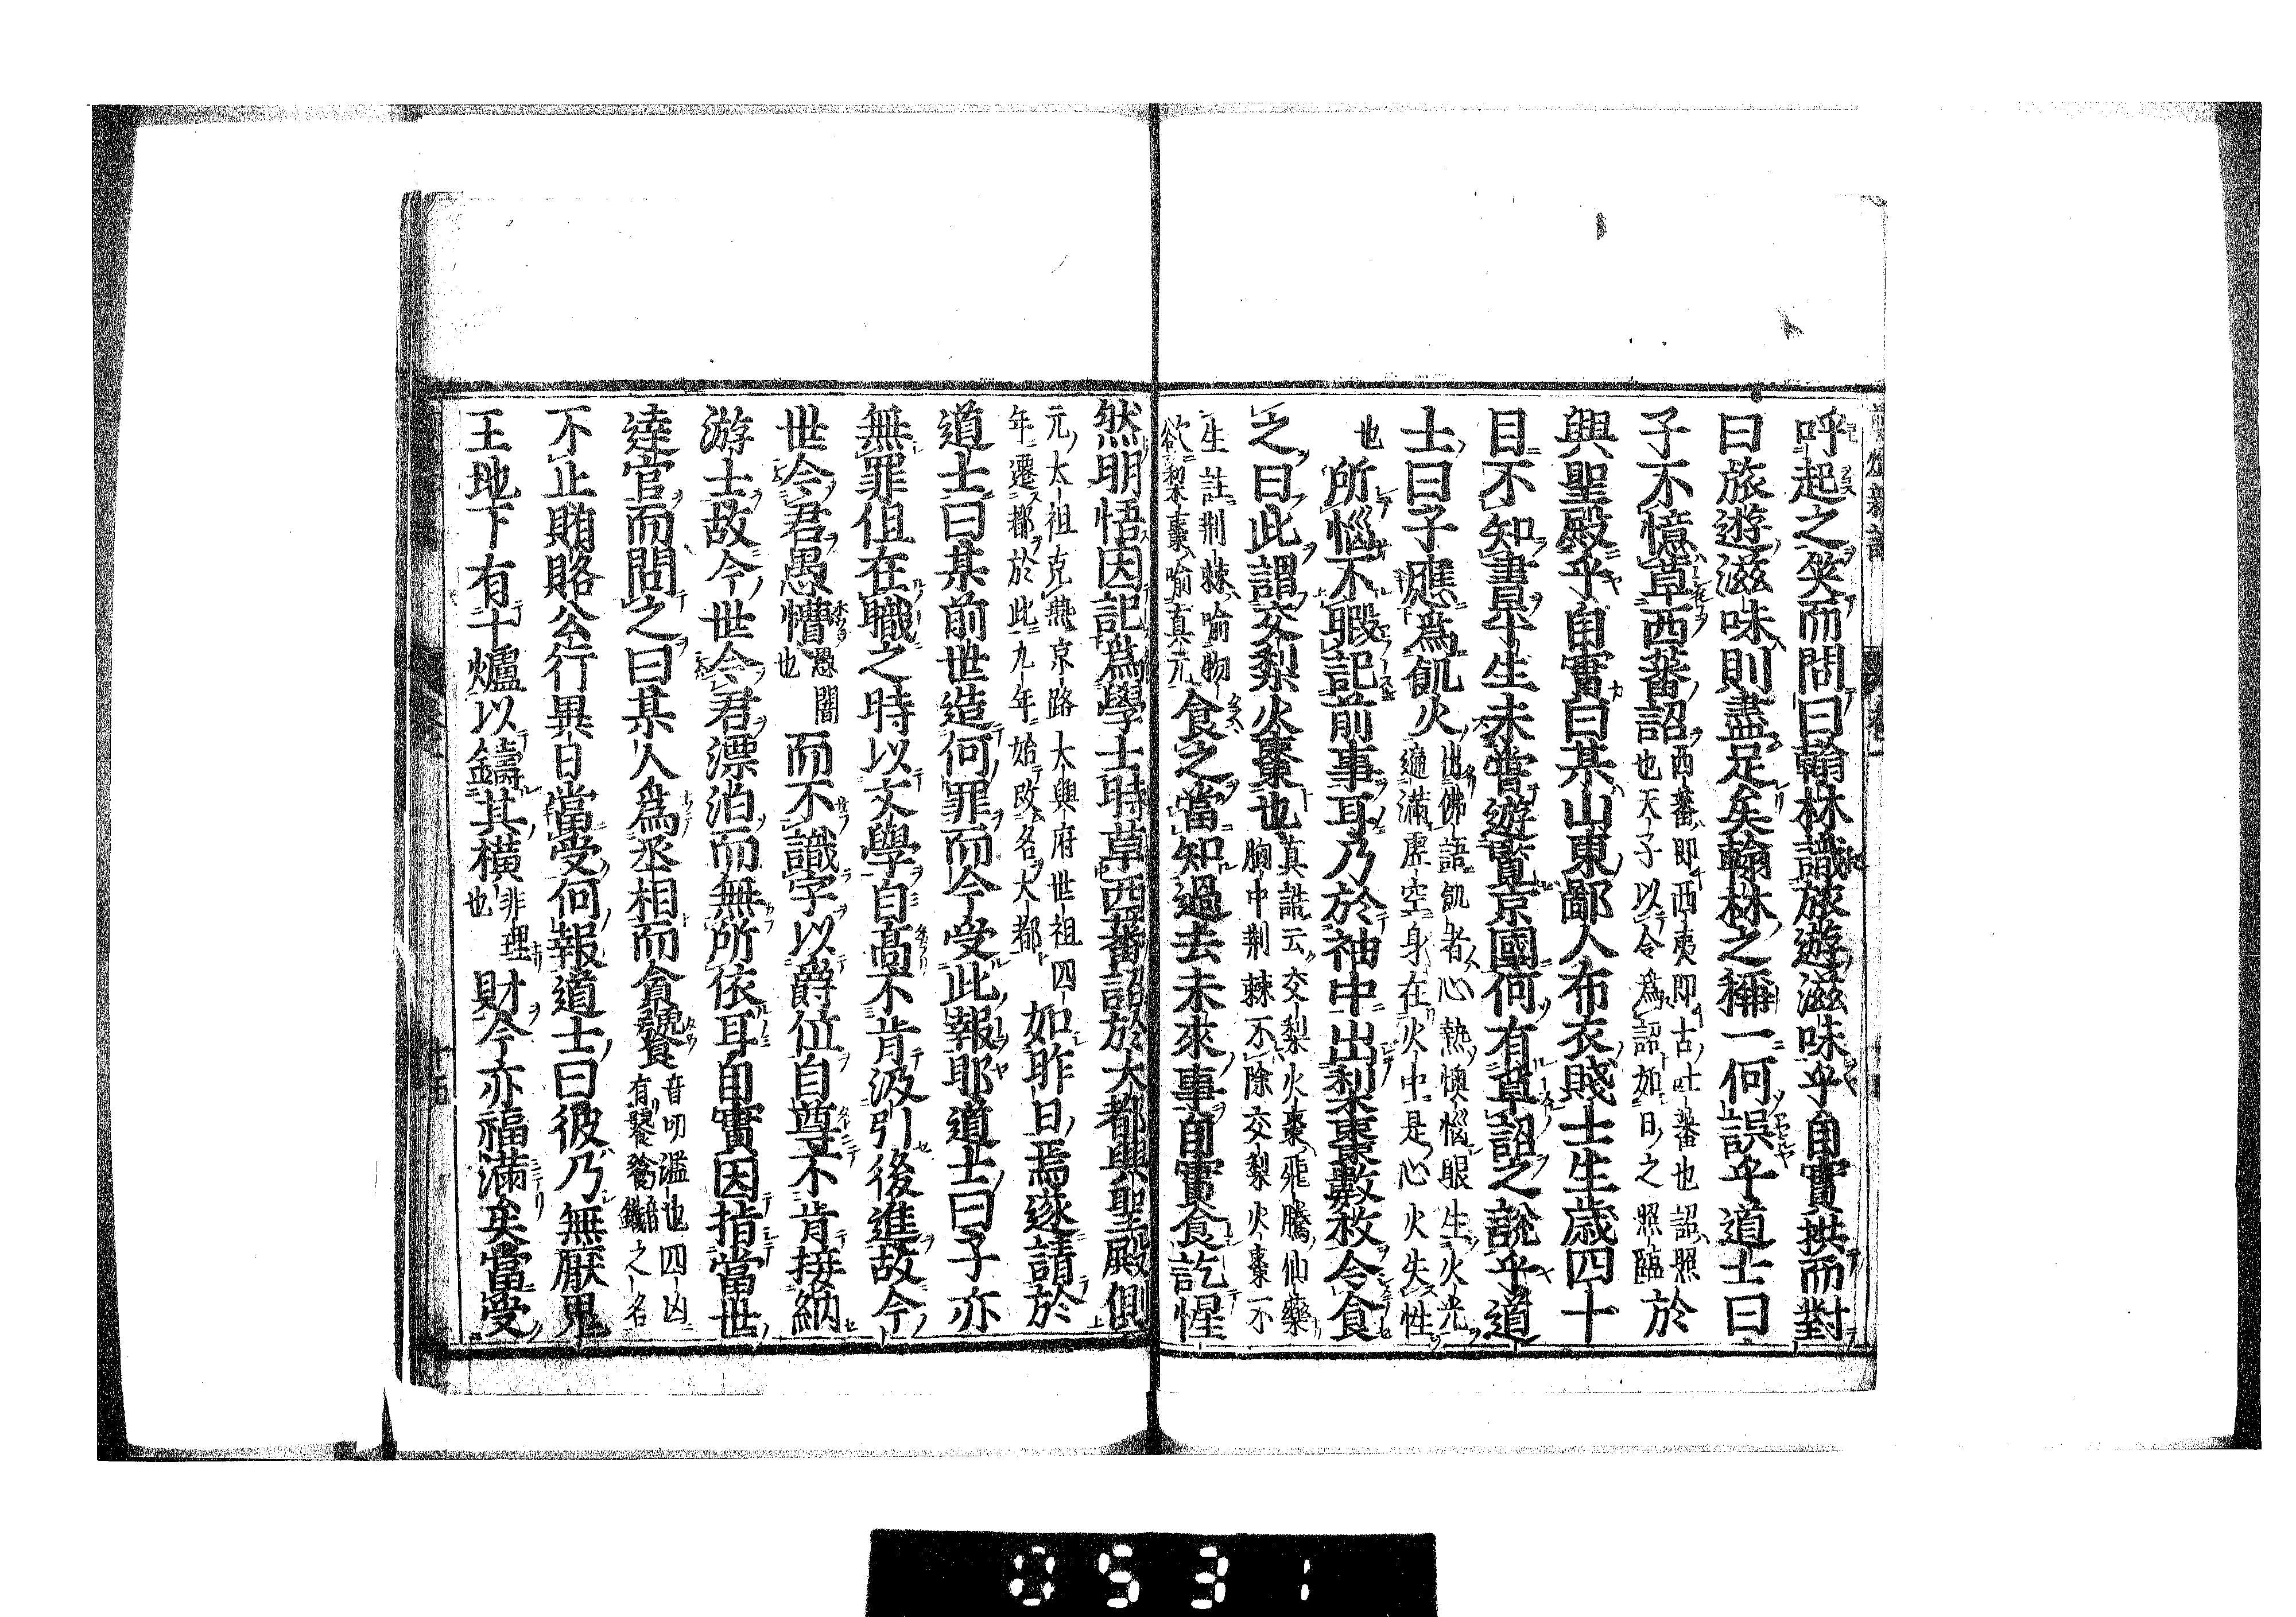 呼起之笑而問曰翰林識旅遊滋味乎自實拱而對
曰旅遊滋味則盡足矣翰林之稱一何誤乎道士曰
子不憶草西蕃詔西蕃即西夷即古吐蕃也詔照也天子以令為詔如日之照臨於
興聖殿乎自實曰某山東鄙人布衣賤士生歲四十
目不知書平生未嘗遊覽京國何有草詔之說乎道
士曰子應為飢火出佛語飢者心熱懊惱眼生火光遍滿虛空身在火中是心火失性
也所惱不暇記前事耳乃於袖中出梨棗數枚令食
之曰此謂交梨火棗也真誥云交梨火棗飛騰仙藥胸中荆棘不除交梨火棗不
生註荆棘喻物欲梨棗喻真元食之當知過去未來事自實食訖惺
然明悟因記為學士時草西蕃詔於大都興聖殿側
元太祖克燕京路大興府世祖四年遷都於此九年始改名大都如昨日焉遂請於
道士曰某前世造何罪而今受此報耶道士曰子亦
無罪但在職之時以文學自高不肯汲引後進故今
世令君愚懵愚闇也而不識字以爵位自尊不肯接納
游士故今世令君漂泊而無所依耳自實因指當世
達官而問之曰某人為丞相而貪饕音叨濫也四凶有饕餮音鐵之名
不止賄賂公行異日當受何報道士曰彼乃無厭鬼
王地下有十爐以鑄其橫非理也財今亦福滿矣當受
十五
0531